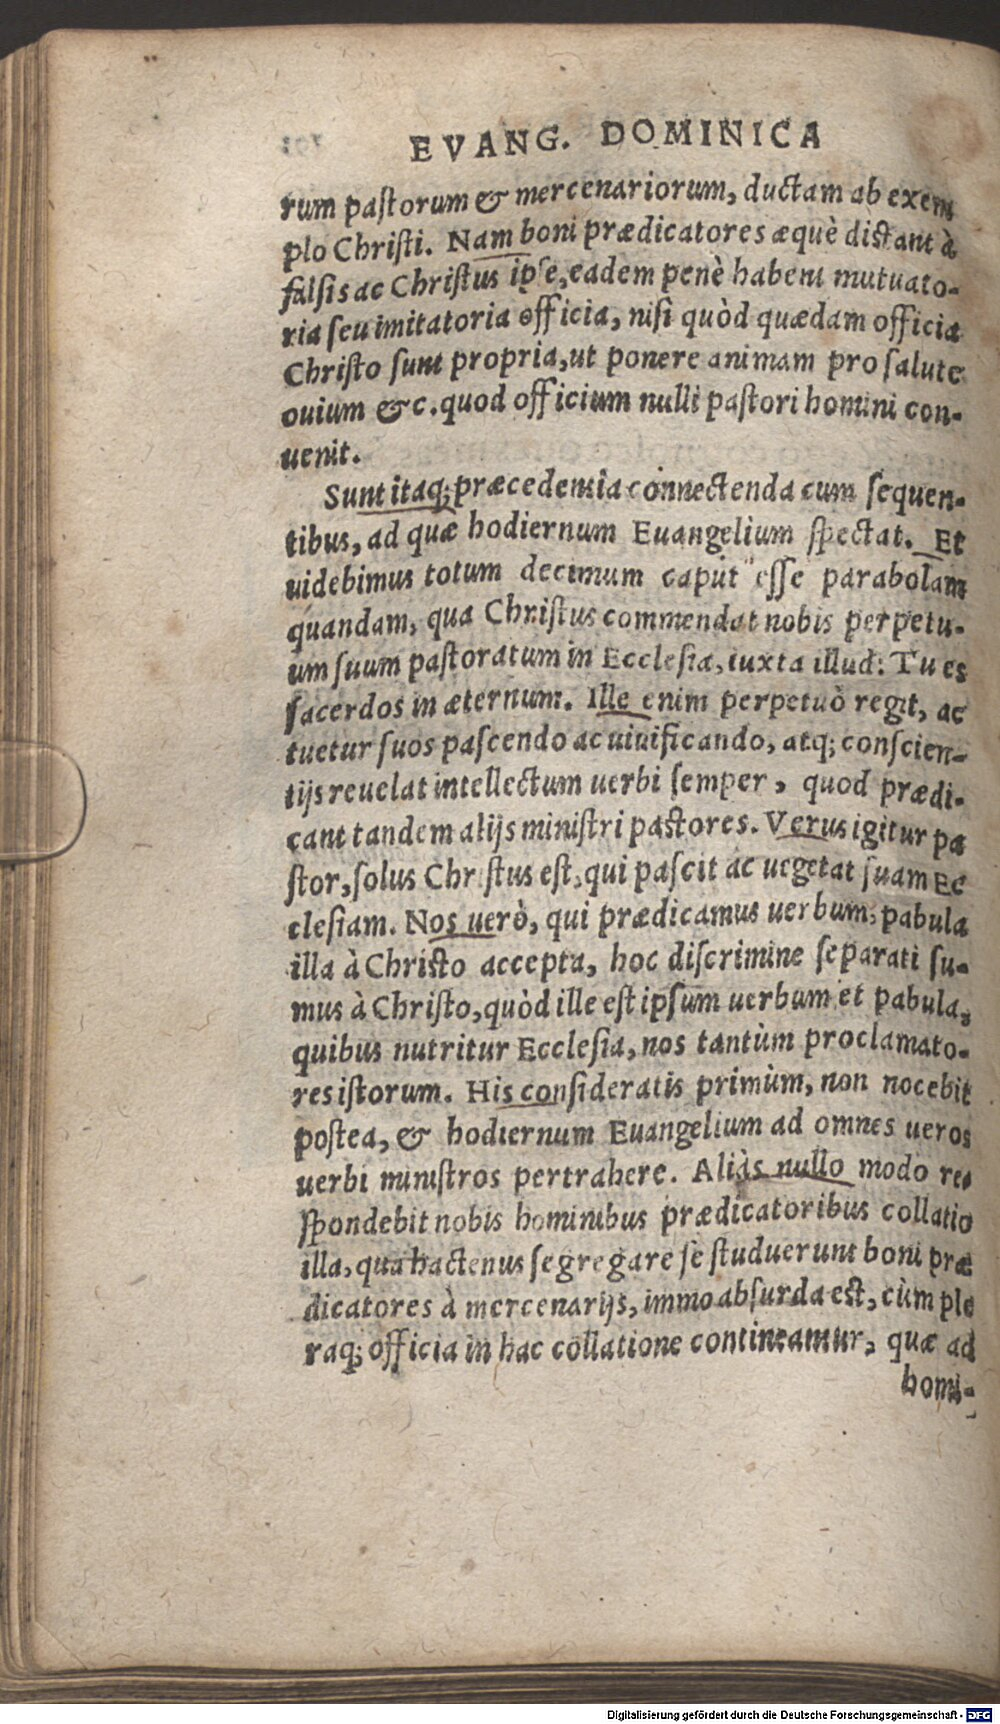 EVANG. DOMINICA
rum pastorum & mercenariorum, ductam ab exem
plo Christi. Nam boni prædicatores æquè distant à
falsis ac Christus ipse, eadem penè habent mutuato-
ria seu imitatoria officia, nisi quòd quædam officia
Christo sunt propria, ut ponere animam pro salute
ouium &c. quod officium nulli pastori homini con-
uenit.
Sunt itaq; præcedentia connectenda cum sequen-
tibus, ad quæ hodiernum Euangelium spectat. Et
uidebimus totum decimum caput esse parabolam
quandam, qua Christus commendat nobis perpetu-
um suum pastoratum in Ecclesia, iuxta illud: Tu es
sacerdos in æternum. Ille enim perpetuò regit, ac
tuetur suos pascendo ac uiuificando, atq; conscien-
tijs reuelat intellectum uerbi semper, quod prædi-
cant tandem alijs ministri pastores. Verus igitur pa
stor, solus Christus est, qui pascit ac uegetat suam Ec
clesiam. Nos uerò, qui prædicamus uerbum, pabula
illa à Christo accepta, hoc discrimine separati su-
mus à Christo, quòd ille est ipsum uerbum et pabula,
quibus nutritur Ecclesia, nos tantùm proclamato-
res istorum. His consideratis primùm, non nocebit
postea, & hodiernum Euangelium ad omnes ueros
uerbi ministros pertrahere. Aliàs nullo modo re-
spondebit nobis hominibus prædicatoribus collatio
illa, qua hactenus segregare se studuerunt boni præ
dicatores à mercenarijs, immo absurda est, cùm ple
raq; officia in hac collatione contineantur, quæ ad
homi-
Digitalisierung gefördert durch die Deutsche Forschungsgemeinschaft - DFG